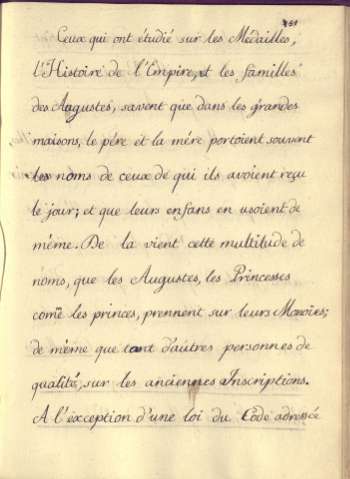 Ceux qui ont étudié sur les Medailles,
l'Histoire de l'Empire, et les familles
des Augustes, savent que dans les grandes
maisons, le pére et la mére portoient souvent
les noms de ceux de qui ils avoient reçu
le jour; et que leurs enfans en usoient de
même. De la vient cette multitude de
noms, que les Augustes, les Princesses
com̄e les princes, prennent sur leurs Monoies;
de même que tant d'autres personnes de
qualité, sur les anciennes Inscriptions.
A l'éxception d'une loi du Code adressée